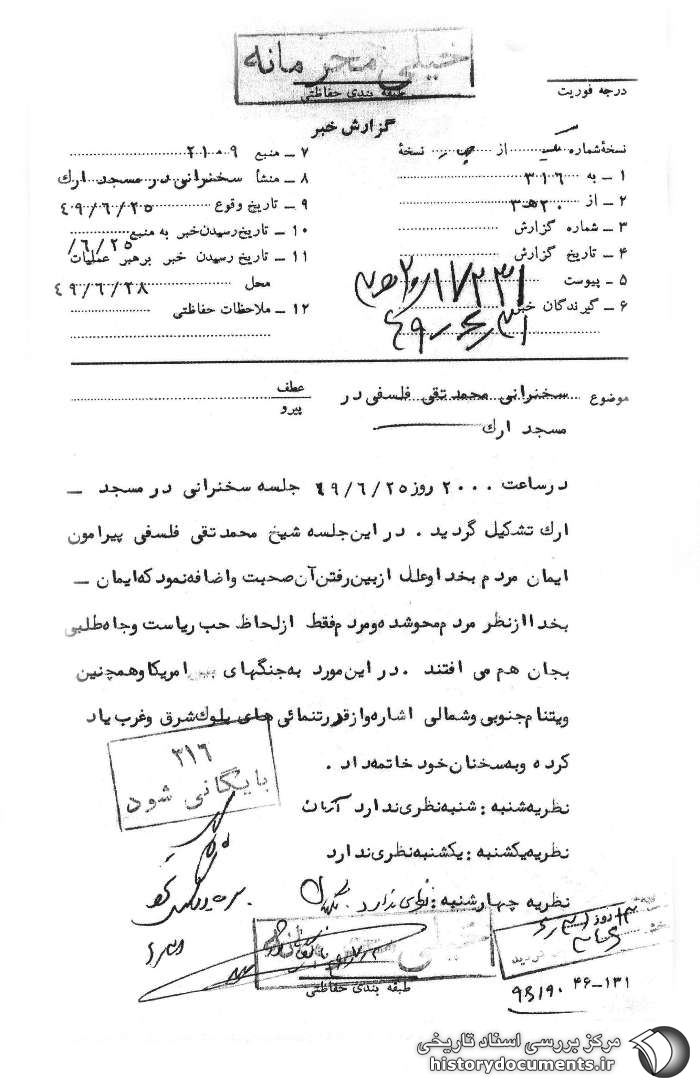 خیلی محرمانه
طبقه بندی حفاظتی
درجه فوریت
گزارش خبر
نسخهٔ شماره از نسخهٔ
۱ ـ به ۳۱۶
۲ ـ از ۲۰ ه‍ ۳
۳ ـ شماره گزارش
۴ ـ تاریخ گزارش
۵ ـ پیوست
۶ ـ گیرندگان خبر
۷ ـ منبع ۲۱۰۹
۸ ـ منشأ سخنرانی در مسجد ارك
۹ ـ تاریخ وقوع ۴۹/۶/۲۵
۱۰ ـ تاریخ رسیدن خبر به منبع
۶/۲۵/
۱۱ ـ تاریخ رسیدن خبر برهبر عملیات
محل ۴۹/۶/۲۸
۱۲ ـ ملاحظات حفاظتی
موضوع سخنرانی محمد تقی فلسفی در
مسجد ارك
عطف
پیرو
در ساعت ۲۰۰۰ روز ۴۹/۶/۲۵ جلسه سخنرانی در مسجد ـ
ارك تشكیل گردید . در این جلسه شیخ محمد تقی فلسفی پیرامون
ایمان مردم بخدا و علل از بین رفتن آن صحبت و اضافه نمود که ایمان ـ
بخدا از نظر مردم محو شده و مردم فقط از لحاظ حب ریاست و جاه طلبی
بجان هم می افتند . در این مورد به جنگهای بین امریکا و همچنین
ویتنام جنوبی و شمالی اشاره و از قدرتنمائی های بلوك شرق و غرب یاد
کرده و به سخنان خود خاتمه داد .
نظریه شنبه : شنبه نظری ندارد
نظریه یکشنبه : یکشنبه نظری ندارد
نظریه چهارشنبه : نظری ندارد .
۳۱۶
بایگانی شود
خیلی محرمانه
طبقه بندی حفاظتی
۴۶-۱۳۱
مرکز بررسی اسناد تاریخی
historydocuments.ir